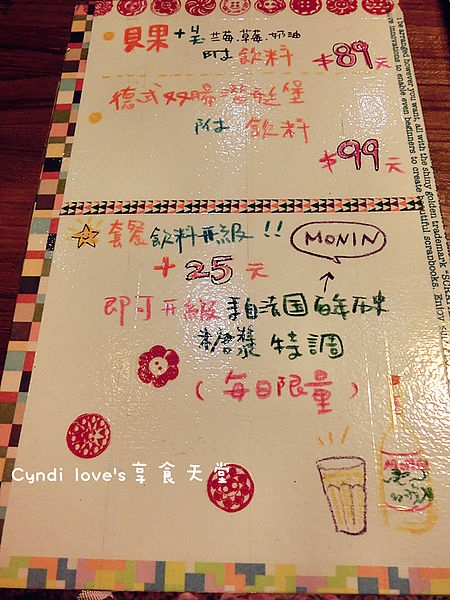 貝果+藍莓,草莓,奶油
附飲料 $89元
德式双腸潛艇堡
附 飲料
$99元
套餐飲料升級!!
MONIN
+25元
即可升級 來自法国百年历史
糖漿 特調
(每日限量)
Cyndi love's享食天堂
be arranged however you want, all with the shiny golden trademark
innovations to enable even beginners to create beautiful scrapbooks. Enjoy